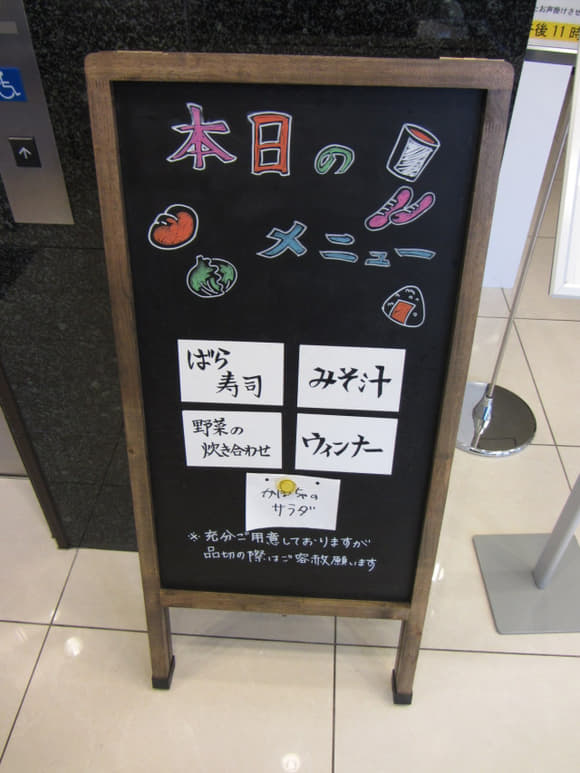 とお声掛けさせ
午後11時
本日の
メニュー
ばら
寿司
みそ汁
野菜の
炊き合わせ
ウィンナー
かぼちゃの
サラダ
※充分ご用意しておりますが
品切の際はご容赦願います